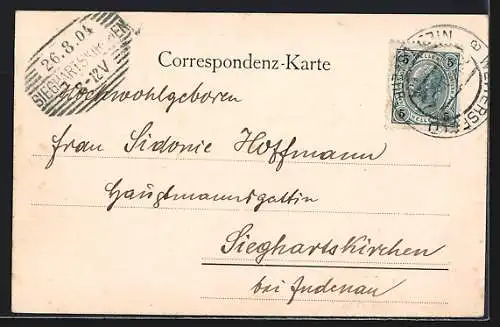 26.8.04
SIEGHARTSKIRCHEN
8-12V
Correspondenz-Karte
5 5
5 5
Hochwohlgeboren
Frau Sidonie Hoffmann
Hauptmannsgattin
Sieghartskirchen
bei Judenau